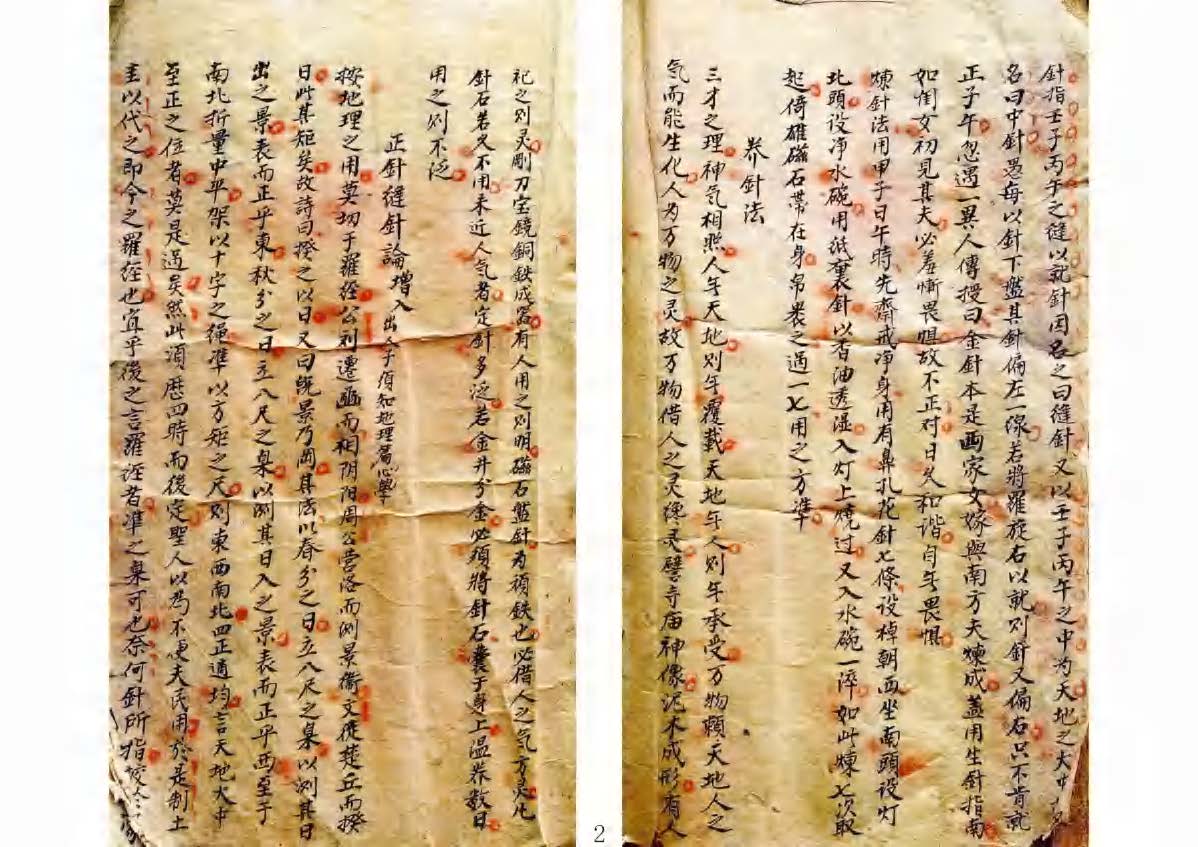 針指壬子丙午之縫以就針因名之曰縫針又以壬子丙午之中为天地之大中
名曰中針愚每以針下盤其針偏左一線若將羅旋右以就則針又偏右只不肯就
正子午忽遇一異人傳授曰金針本是西家女嫁與南方夫煉成盖用生針指南
如闺女初見其夫必羞慚畏惧故不正对日久和谐自无畏惧
煉針法用甲子日午時先齋戒净身用有鼻孔花針七條设棹朝西坐南頭设灯
北頭设净水碗用紙裹針以香油透湿入灯上燒过又入水碗一淬如此煉七次取
起倚雄磁石帶在身帛裹之過一七用之方準
养針法
三才之理神气相照人无天地则无覆載天地无人则无承受万物賴天地人之
气而能生化人为万物之灵故万物借人之灵後灵譬寺庙神像泥木成形有人
祀之则灵剛刀宝鏡銅鉄成器有人用之则明磁石盤針为頑鉄也必借人之气方灵凡
針石若久不用未近人气者定針多泛若金井分金必須將針石囊于身上温养数日
用之则不泛
正針縫針論增入 出人子須知地理篇心學
按地理之用莫切于羅經公刘遷豳而相阴阳周公营洛而测景衞文徙楚丘而揆
日此其矩矣故詩曰揆之以日又曰既景乃岡其法以春分之日立八尺之臬以测其日
出之景表而正乎東秋分之日立八尺之臬以测其日入之景表而正乎西至于
南北折量中平架以十字之绳準以方矩之尺则東西南北四正適均言天地大中
至正之位者莫是過矣然此須歷四時而後定聖人以為不便夫民用於是制土
圭以代之即今之羅經也宜乎後之言羅經者準之臬可也奈何針所指